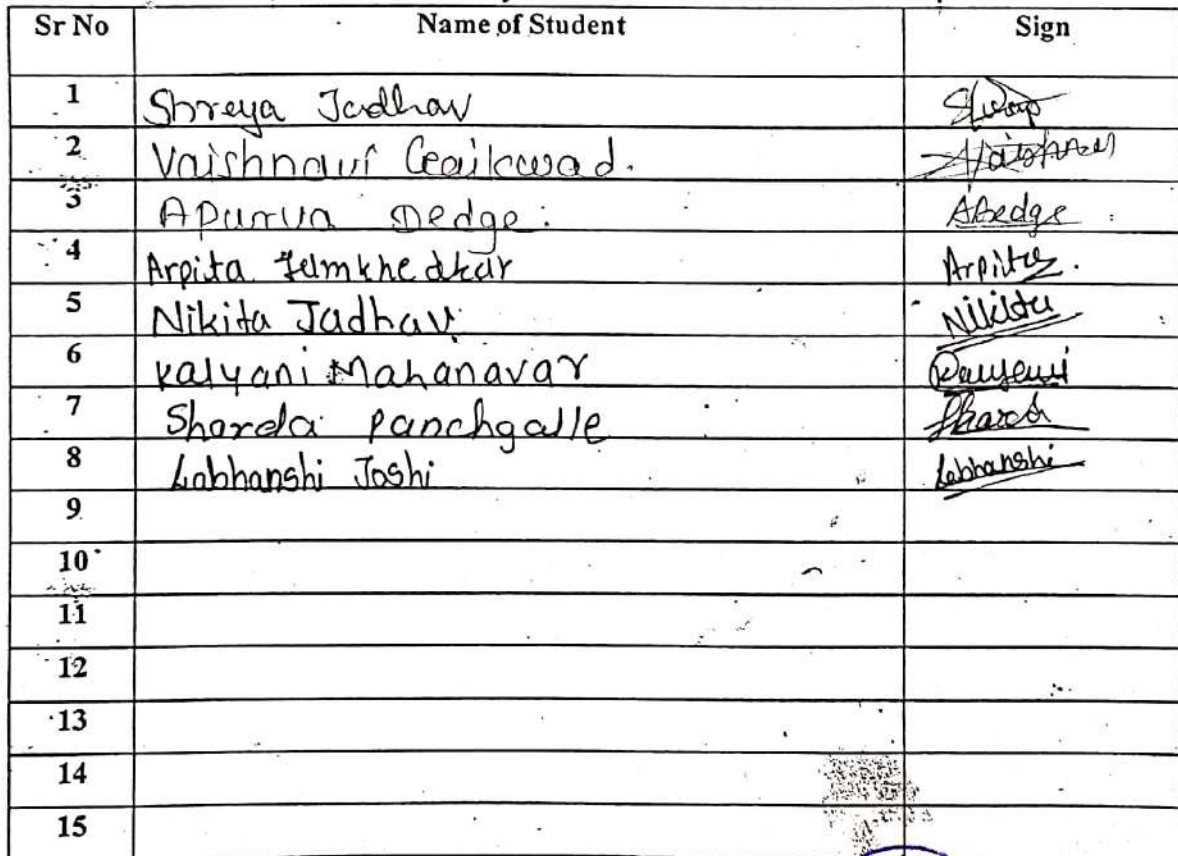 Sr No Name of Student Sign
1 Shreya Jadhav
2 Vaishnavi Gaikwad. Vaishnavi
3 Apurva Dedge. ADedge
4 Arpita Arpita.
5 Nikita Jadhav Nikita
6 Kalyani Mahanavar
7 Sharda Panchgalle Sharda
8 Labhanshi Joshi Labhanshi
9
10
11
12
13
14
15